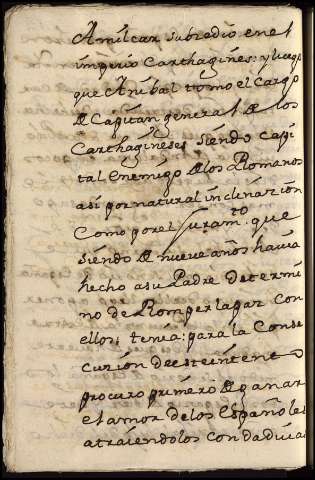 Amilcar subredio en el
imperio Carthagines: y luego
que Anibal tomo el cargo
de Capitan general de los
Carthagineses siendo capi
tal Enemigo de los Romanos
asi por natural inclinazion
Como por el Juramto. que
siendo de nueve años havia
hecho asu Padre determi
no de Romper la paz con
ellos; tenia: para la Conse
cuzion de este intento
procuro primero de ganar
el amor de los Españoles
atraiendolos con dadivas